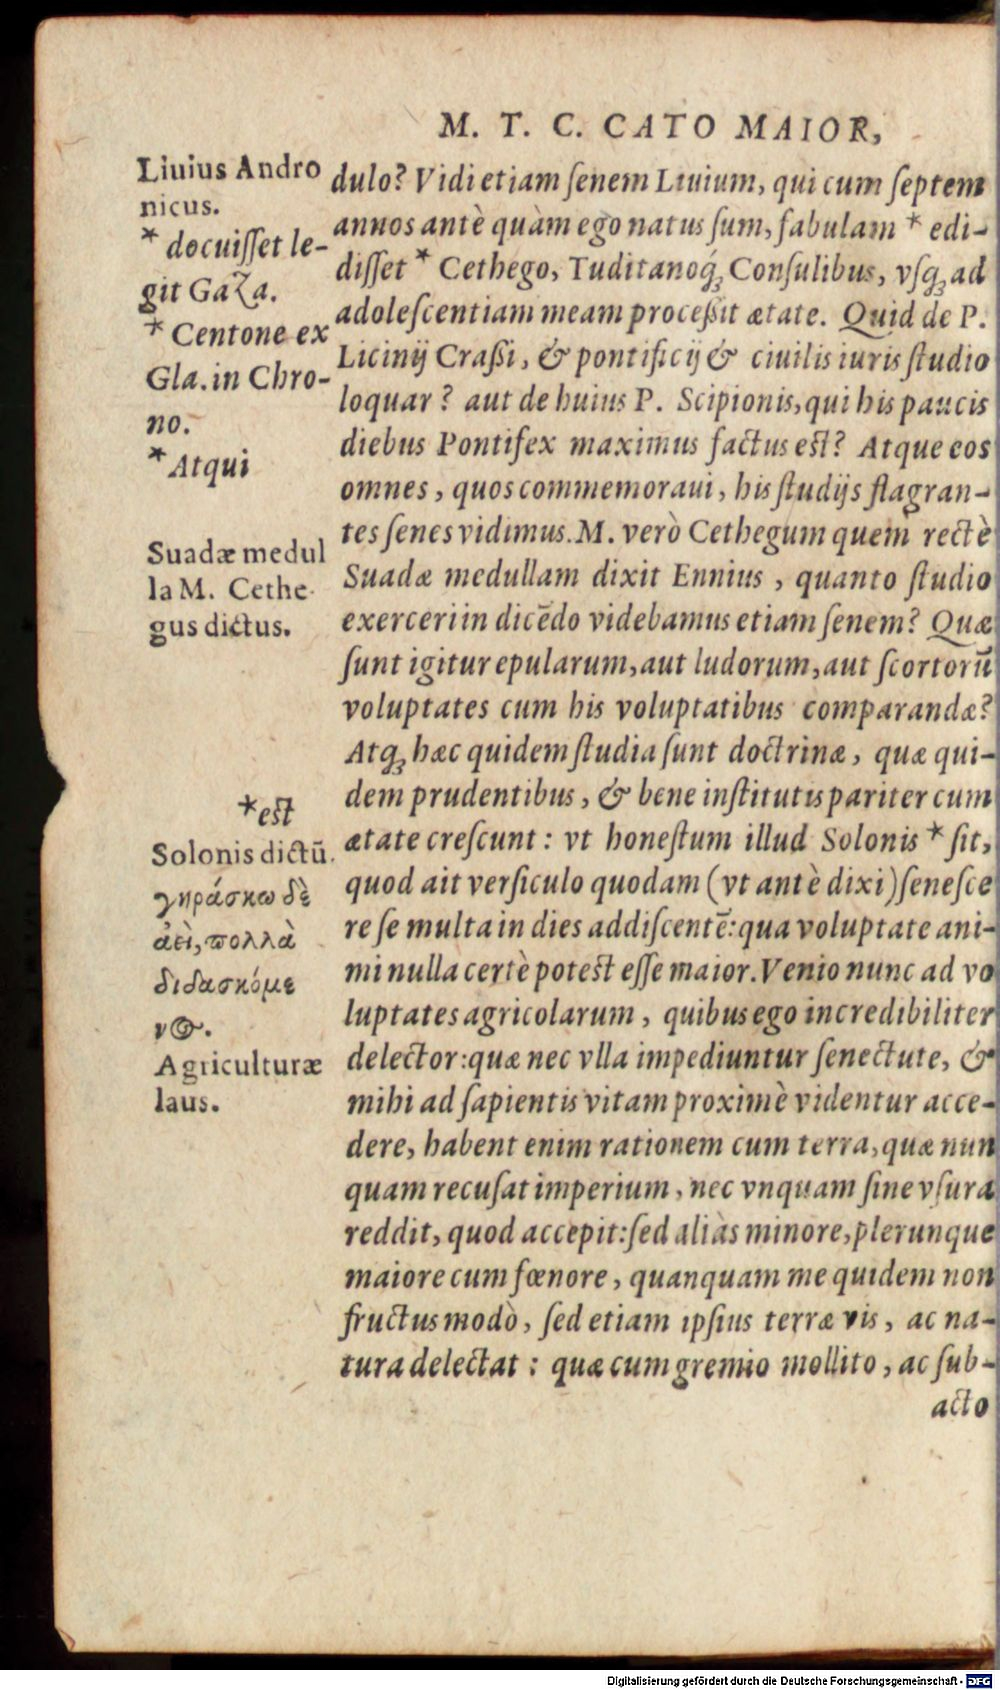 M. T. C. CATO MAIOR,
Liuius Andro
nicus.
* docuiſſet le-
git GaZa.
* Centone ex
Gla. in Chro-
no.
* Atqui
Suadæ medul
la M. Cethe-
gus dictus.
*est
Solonis dictū.
γηράσκω δὲ
ἀεὶ, πολλὰ
διδασκόμε
νος.
Agriculturæ
laus.
dulo? Vidi etiam ſenem Liuium, qui cum ſeptem
annos antè quàm ego natus ſum, fabulam * edi-
diſſet * Cethego, Tuditanoq́; Conſulibus, vſq; ad
adoleſcentiam meam proceßit ætate. Quid de P.
Licinij Craßi, & pontificij & ciuilis iuris ſtudio
loquar? aut de huius P. Scipionis, qui his paucis
diebus Pontifex maximus factus est? Atque eos
omnes, quos commemoraui, his ſtudijs flagran-
tes ſenes vidimus. M. verò Cethegum quem rectè
Suadæ medullam dixit Ennius, quanto ſtudio
exerceri in dicēdo videbamus etiam ſenem? Quæ
ſunt igitur epularum, aut ludorum, aut ſcortorū
voluptates cum his voluptatibus comparandæ?
Atq; hæc quidem ſtudia ſunt doctrinæ, quæ qui-
dem prudentibus, & bene inſtitutis pariter cum
ætate creſcunt: vt honeſtum illud Solonis * ſit,
quod ait verſiculo quodam (vt antè dixi) ſeneſce
re ſe multa in dies addiſcentē: qua voluptate ani-
mi nulla certè potest eſſe maior. Venio nunc ad vo
luptates agricolarum, quibus ego incredibiliter
delector: quæ nec vlla impediuntur ſenectute, &
mihi ad ſapientis vitam proximè videntur acce-
dere, habent enim rationem cum terra, quæ nun
quam recuſat imperium, nec vnquam ſine vſura
reddit, quod accepit: ſed aliàs minore, plerunque
maiore cum fœnore, quanquam me quidem non
fructus modò, ſed etiam ipſius terræ vis, ac na-
tura delectat: quæ cum gremio mollito, ac ſub-
acto
Digitalisierung gefördert durch die Deutsche Forschungsgemeinschaft - DFG